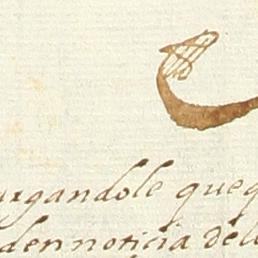 urgandole queq
den noticia dell